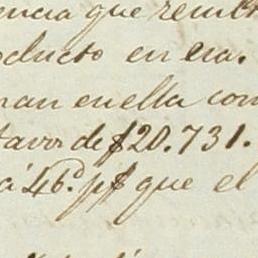 encia que remit
oducto en esa.
nan en ella con
tavos de $20.731.
á 46d. p$ que el